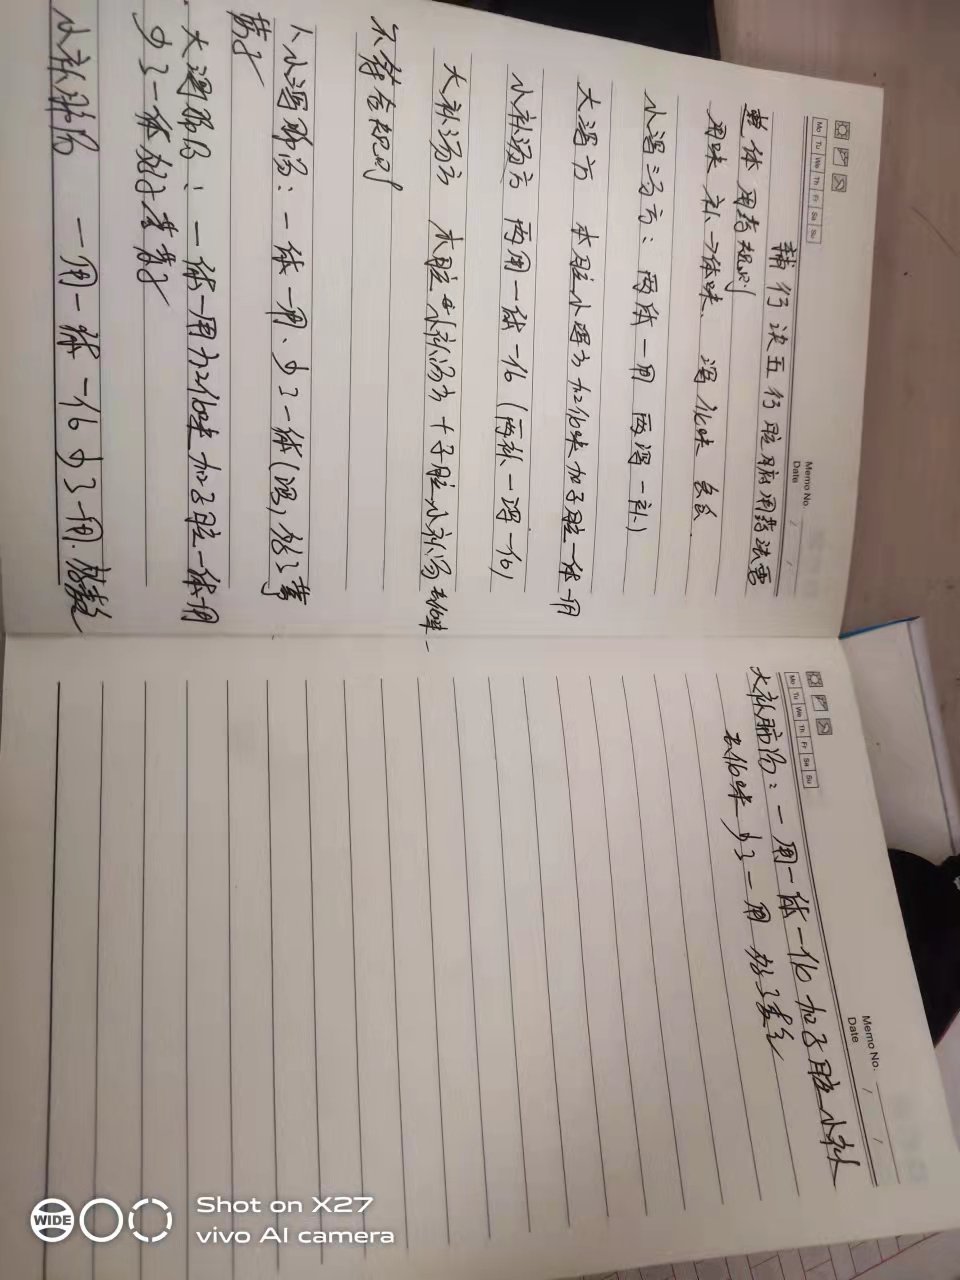 Memo No.
Date
Mo Tu We Th Fr Sa Su
辅行诀五行脏腑用药法要
整体用药规则
用味 补→体味、泻 化味
小泻汤方：两体一用 两泻一补)
大泻方 本脏小泻方加化味加子脏一体一用
小补汤方 两用一体一化(两补一泻一化)
大补汤方 本脏 小补汤方+子脏小补汤去化味
不符合规则
小泻 汤：一体一用、少了一体(泻,
大泻 汤：一体一用加化味加子脏一体一用
少了一体
小补肺汤 一用一体一化少了一用.
Memo No.
Date
Mo Tu We Th Fr Sa Su
大补肺汤：一用一体一化加子脏小补
去化味少了一用
WIDE
Shot on X27
vivo AI camera